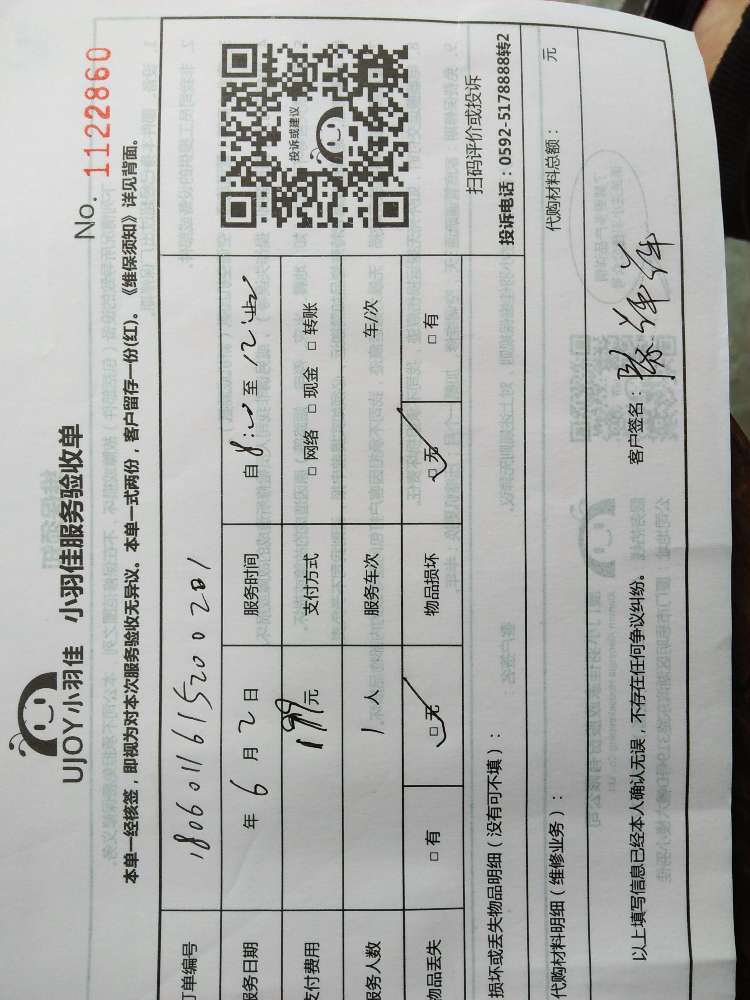 UJOY小羽佳 小羽佳服务验收单
No. 1122860
本单一经核签，即视为对本次服务验收无异议。本单一式两份，客户留存一份(红)。《维保须知》详见背面。
订单编号 180601161520201
服务日期 年 6 月 2 日 服务时间 自 8:00 至 12:
支付费用 199 元 支付方式 □ 网络 □ 现金 □ 转账
服务人数 1 人 服务车次 车/次
物品丢失 □ 有 □ 无 物品损坏 □ 无 □ 有
投诉或建议
扫码评价或投诉
投诉电话：0592-5178888转2
损坏或丢失物品明细（没有可不填）：
代购材料明细（维修业务）： 代购材料总额： 元
以上填写信息已经本人确认无误，不存在任何争议纠纷。 客户签名：陈萍萍